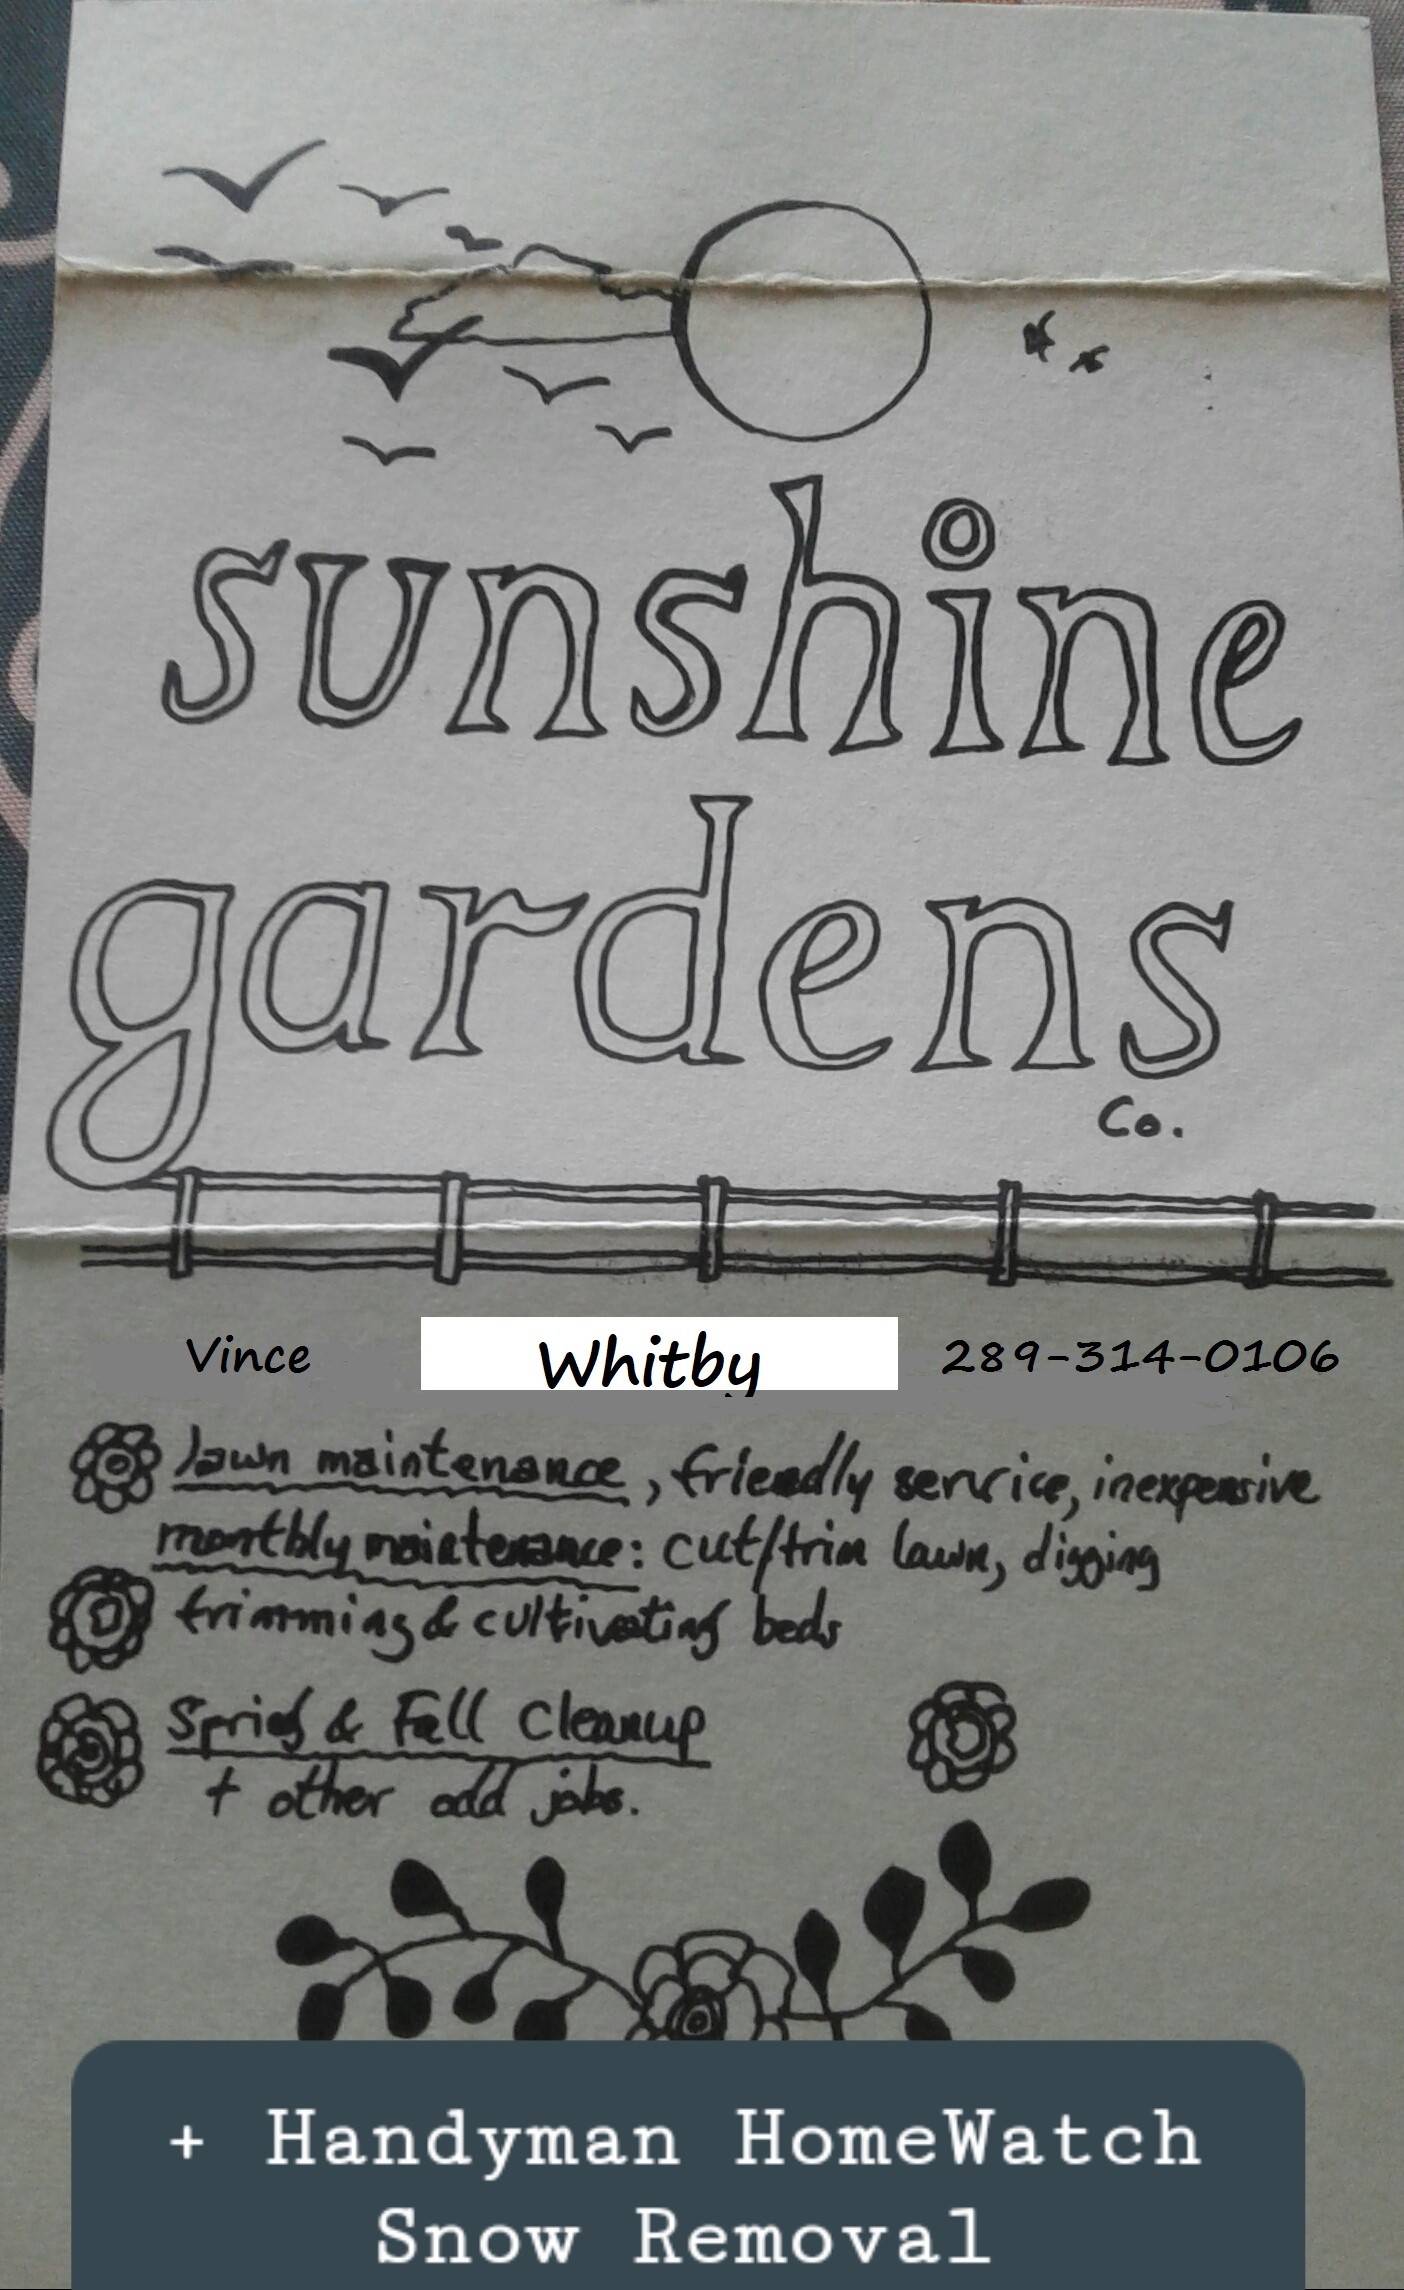 sunshine
gardens
Co.
Vince Whitby 289-314-0106
lawn maintenance, friendly service, inexpensive
monthly maintenance: cut/trim lawn, digging
trimming & cultivating beds
Spring & Fall Cleanup
+ other odd jobs.
+ Handyman HomeWatch
Snow Removal